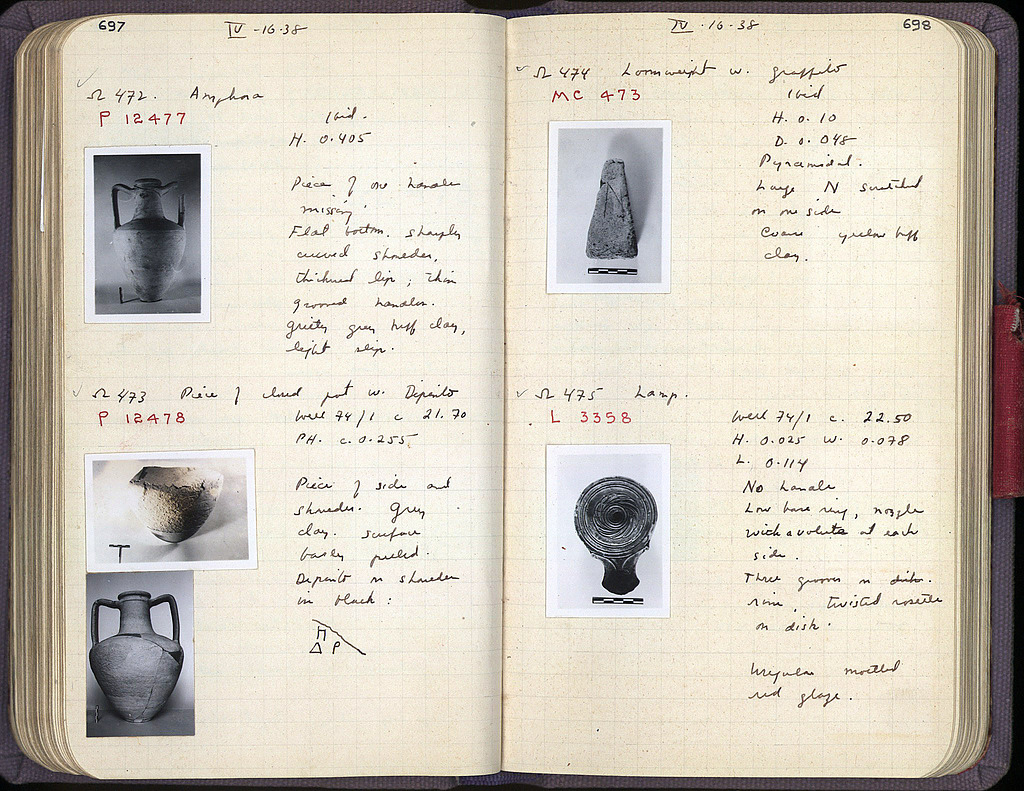 697
IV -16-38
Ω 472. Amphora
P 12477
Ibid.
H. 0.405
Piece of one handle
missing.
Flat bottom. sharply
curved shoulder,
thickened lip; thin
grooved handles.
gritty grey buff clay,
light slip.
Ω 473 Piece of closed pot w. Dipinto
P 12478
Well 74/1 c. 21.70
PH. c. 0.255
Piece of side and
shoulder. Grey
clay. surface
badly peeled.
Dipinto on shoulder
in black:
Η
Δ Ρ
698
IV -16-38
Ω 474 Loomweight w. graffito
MC 473
Ibid
H. 0.10
D. 0.048
Pyramidal.
Large N scratched
on one side
Coarse yellow buff
clay.
Ω 475 Lamp.
L 3358
Well 74/1 c. 22.50
H. 0.025 W. 0.078
L. 0.114
No handle
Low base ring, nozzle
with a volute at each
side.
Three grooves on
rim, twisted rosette
on disk.
Irregular mottled
red glaze.